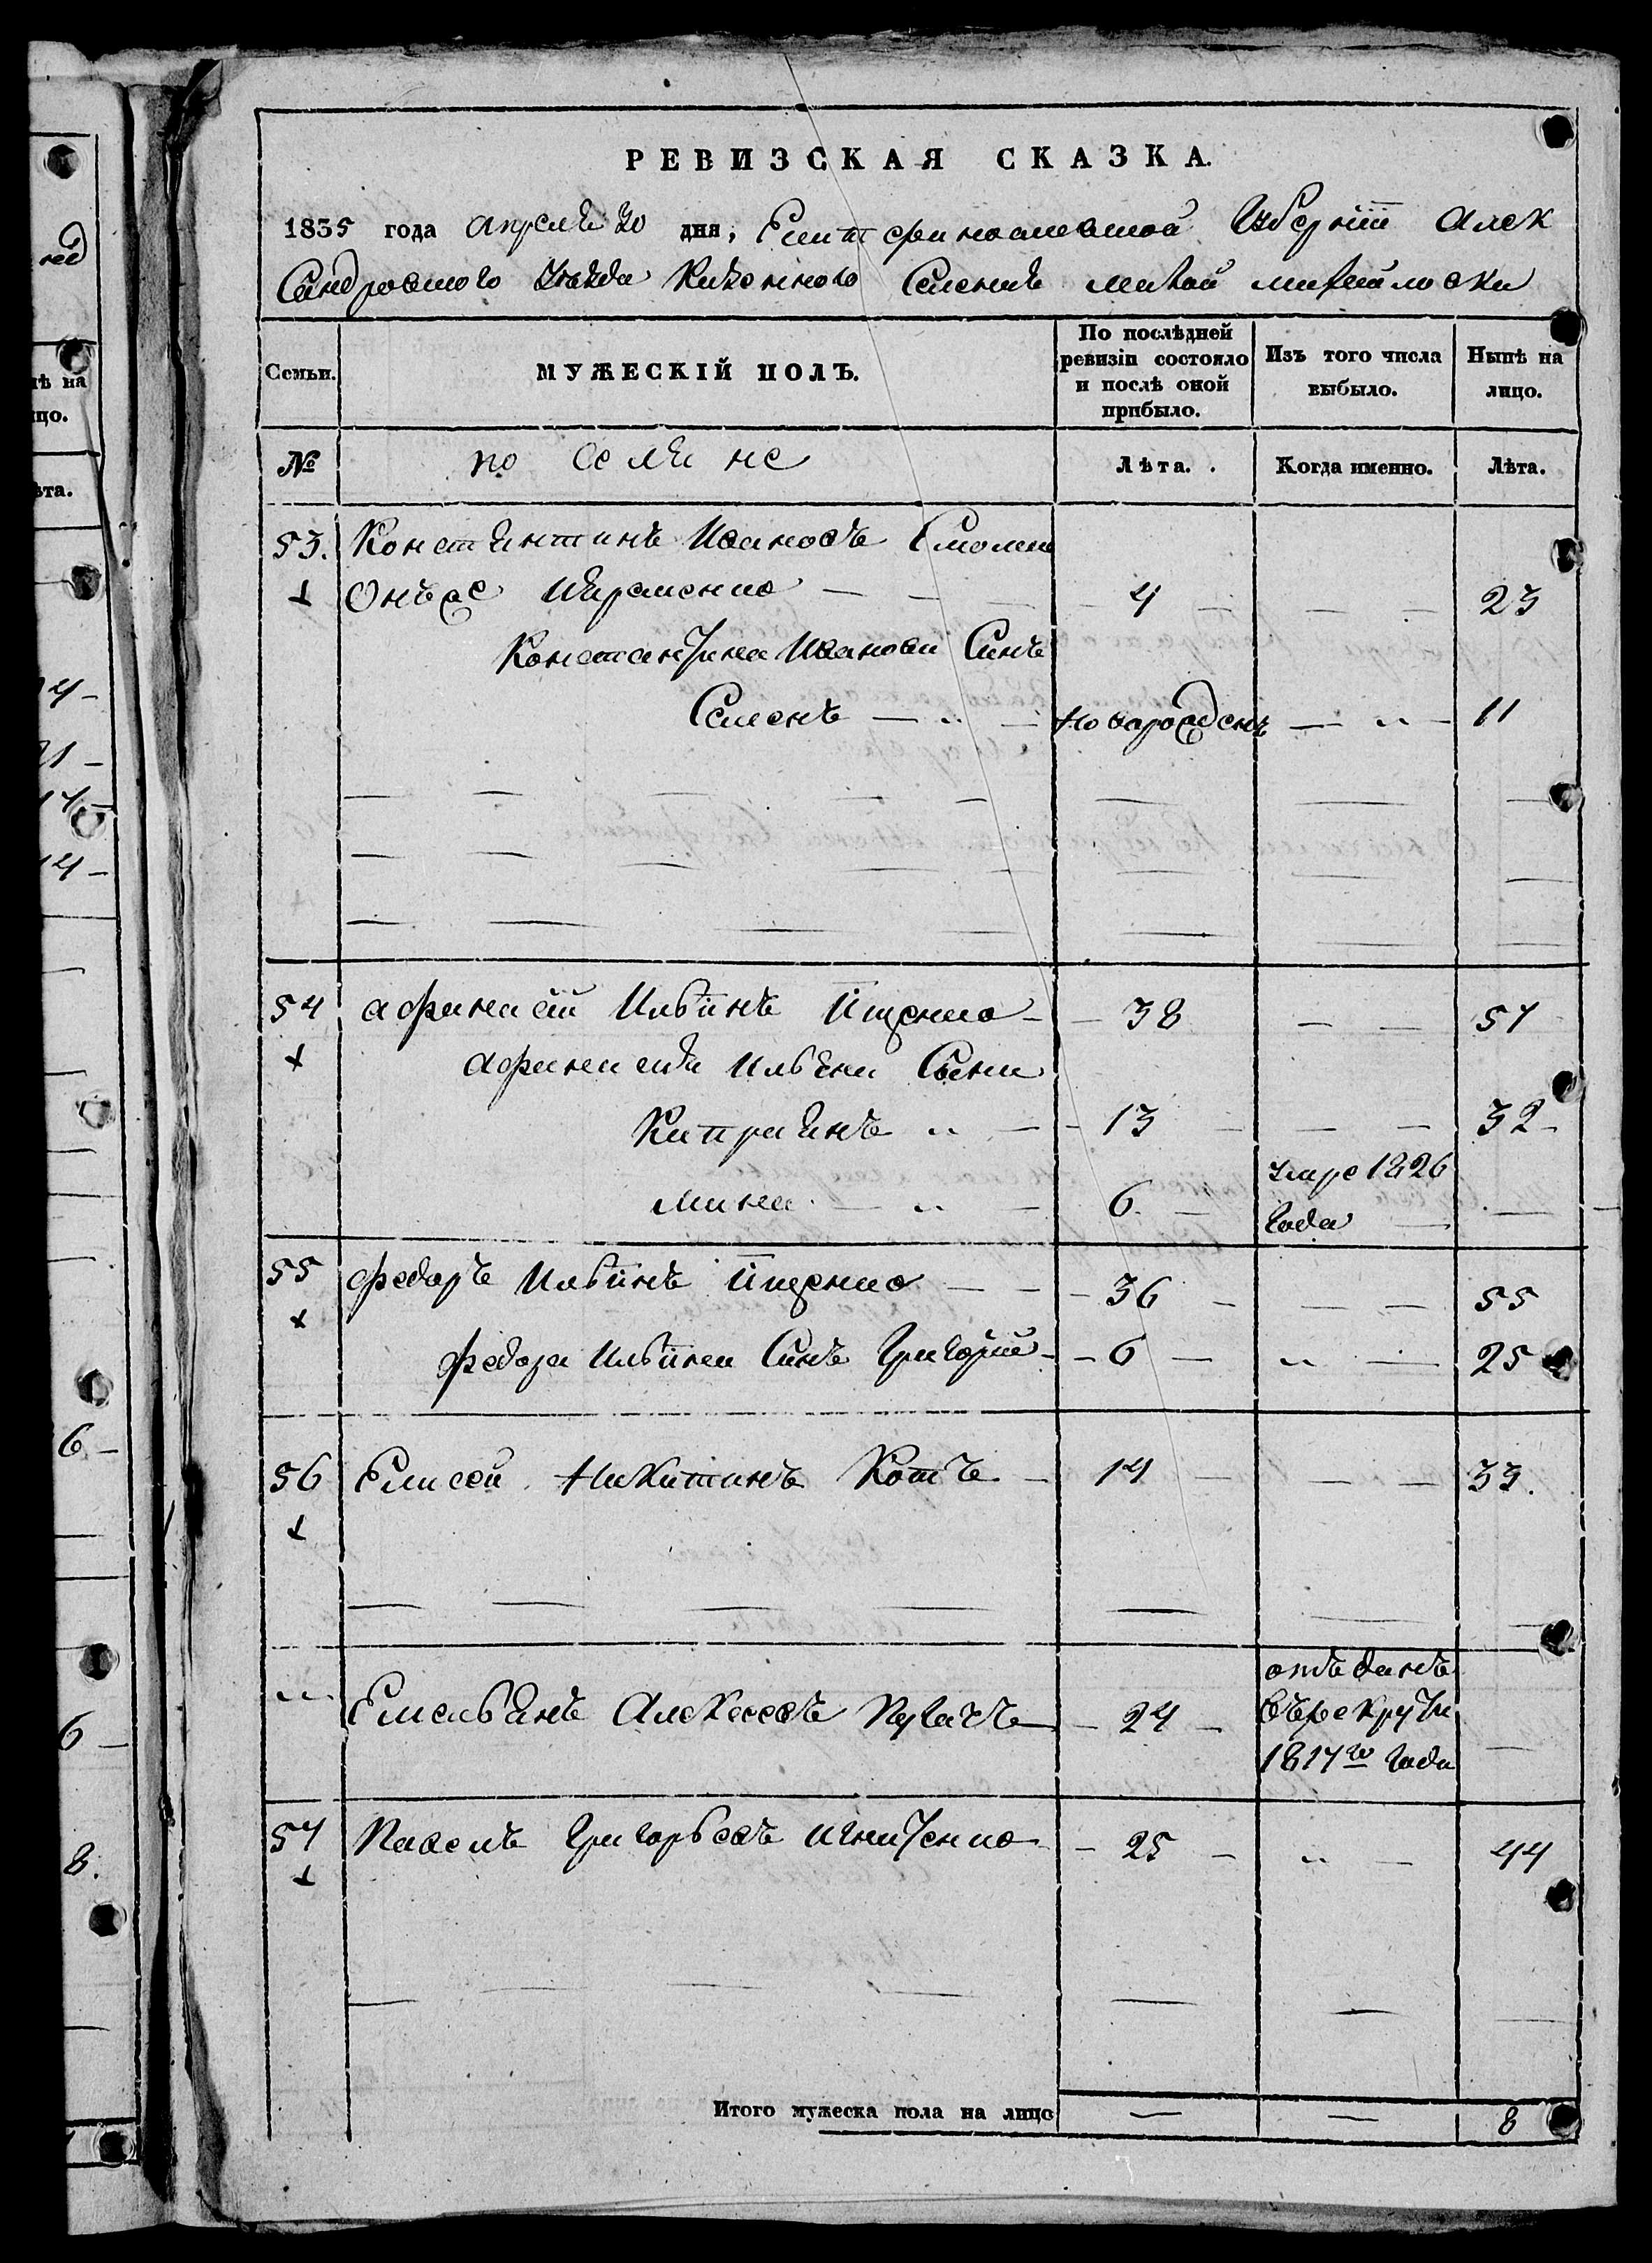 РЕВИЗСКАЯ СКАЗКА.
1835 года апреля 20 дня, Екатеринославской Губерніи Алек
Сандровского Уезда Казенного Селения малой михайловки
Семьи.
МУЖЕСКІЙ ПОЛЪ.
По послѣдней
ревизіи состояло
и послѣ оной
прибыло.
Изъ того числа
выбыло.
Нынѣ на
лицо.
№
Лѣта.
Когда именно.
Лѣта.
53. Константинъ Ивановъ
4 23
Константина Иванова Синъ
Семенъ новарожденъ 11
54 афанасій Ильинъ Іщенко 38 57
афанасия Ильина Сыни
Каприянъ 13 32
мина 6 умре 1826
Года
55 федоръ Ильинъ Іщенко 36 55
федора Ильина Синъ Григорій 6 25
56 Елисей Никитинъ Котъ 14 33.
Емельянъ Алексеевъ Пугачъ 24 отъданъ
върекруты
1817го Года
57 Павелъ Григорьевъ Игнатенко 25 44
Итого мужеска пола на лицо 8
нѣ на
ицо.
ѣта.
14
6
6
8.